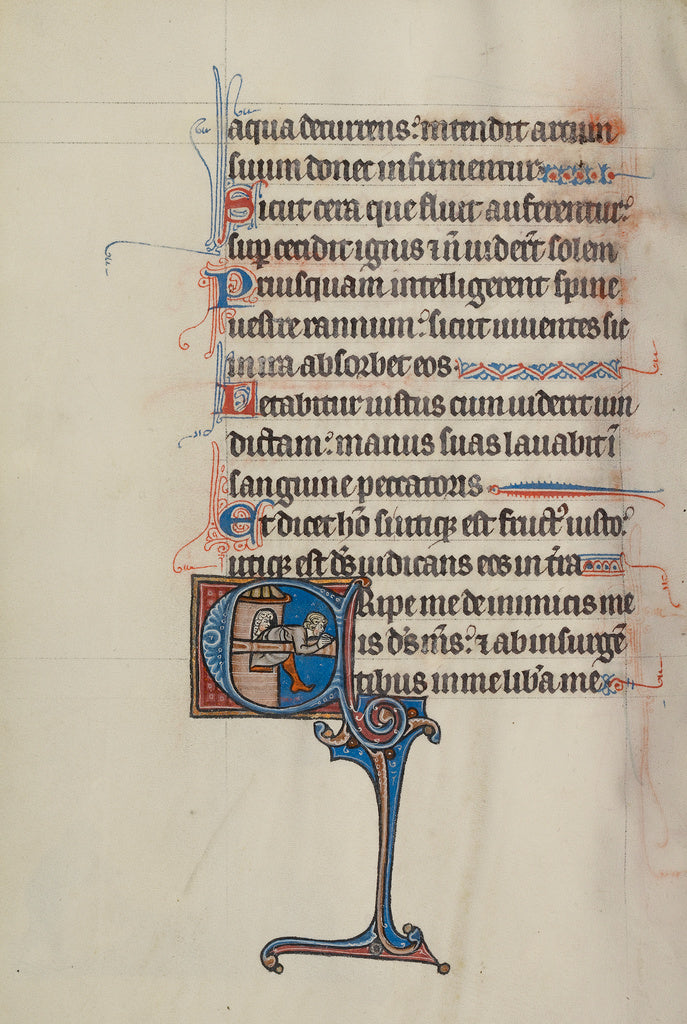 aqua decurrens: intendit arcum
suum donec infirmentur
Sicut cera que fluit auferentur:
sup cecidit ignis ⁊ ñ uiderũt solem
Priusquam intelligerent spine
uestre rannum: sicut uiuentes sic
in ira absorbet eos
Letabitur iustus cum uiderit uin
dictam: manus suas lauabit ĩ
sanguine peccatoris
Et dicet hõ si utiqȝ est fruct᷒ iusto:
utiqȝ est ds̃ iudicans eos in tr̃a
ERipe me de inimicis me
is ds̃ ms̃: ⁊ ab insurgẽ
tibus in me lib̃a me